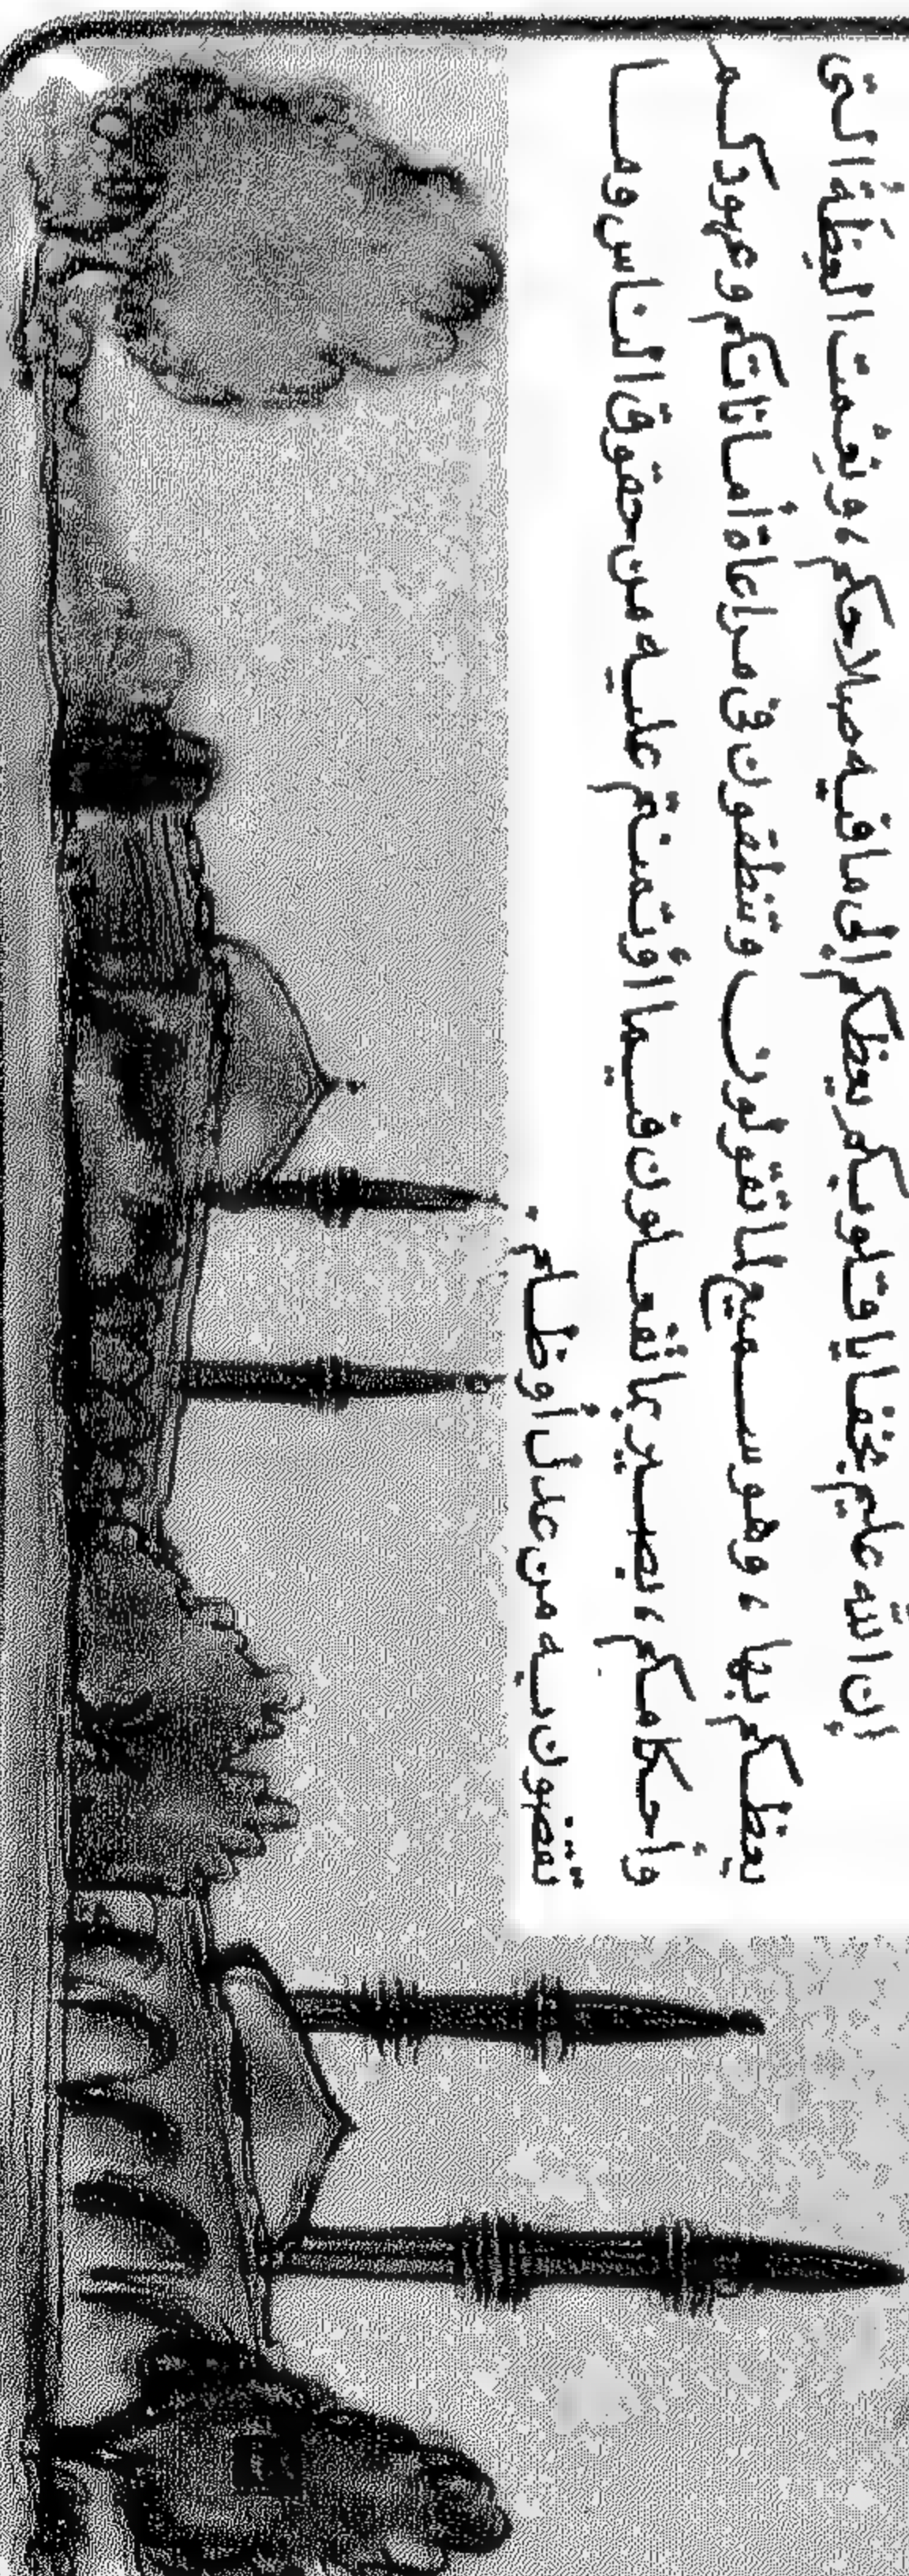 إن الله عليم بخفايا قلوبكم يعظكم إلى ما فيه صلاحكم، ونعمت العظة التي
يعظكم بها، وهو سميع لما تقولون وتنطقون في مراعاة أماناتكم وعهودكم
وأحكامكم، بصير بما تفعلون فيما اؤتمنتم عليه من حقوق الناس وما
تقضون به من عدل أو ظلم.